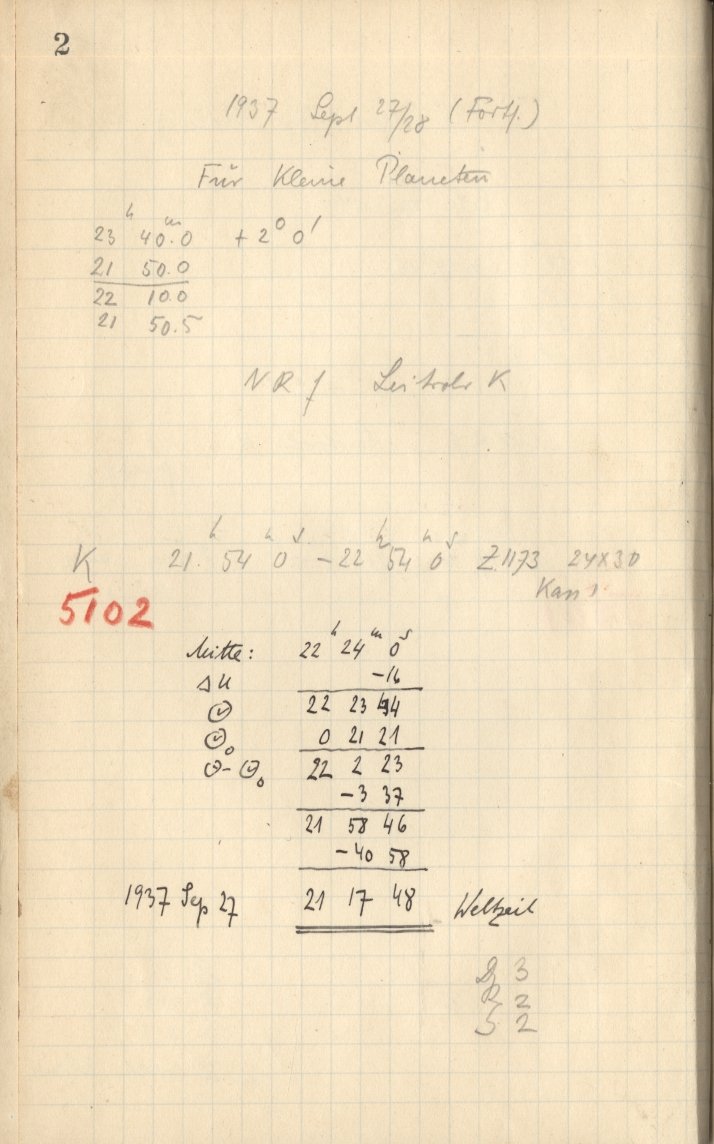 2
1937 Sept 27/28 (Fortf.)
Für Kleine Planeten
23ʰ 40ᵐ.0 + 2° 0'
21 50.0
22 10.0
21 50.5
NR f Leitrohr K
K 21ʰ 54ᵐ 0ˢ – 22ʰ 54ᵐ 0ˢ Z.1173 24x30
5102
Mitte: 22ʰ 24ᵐ 0ˢ
Δu -16
22 23 44
0 21 21
22 2 23
-3 37
21 58 46
-40 58
1937 Sep 27 21 17 48 Weltzeit
D 3
R 2
S 2